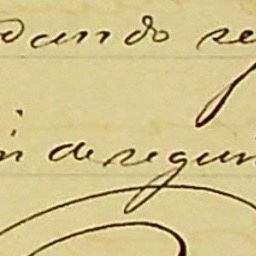 dando se
in deseguin